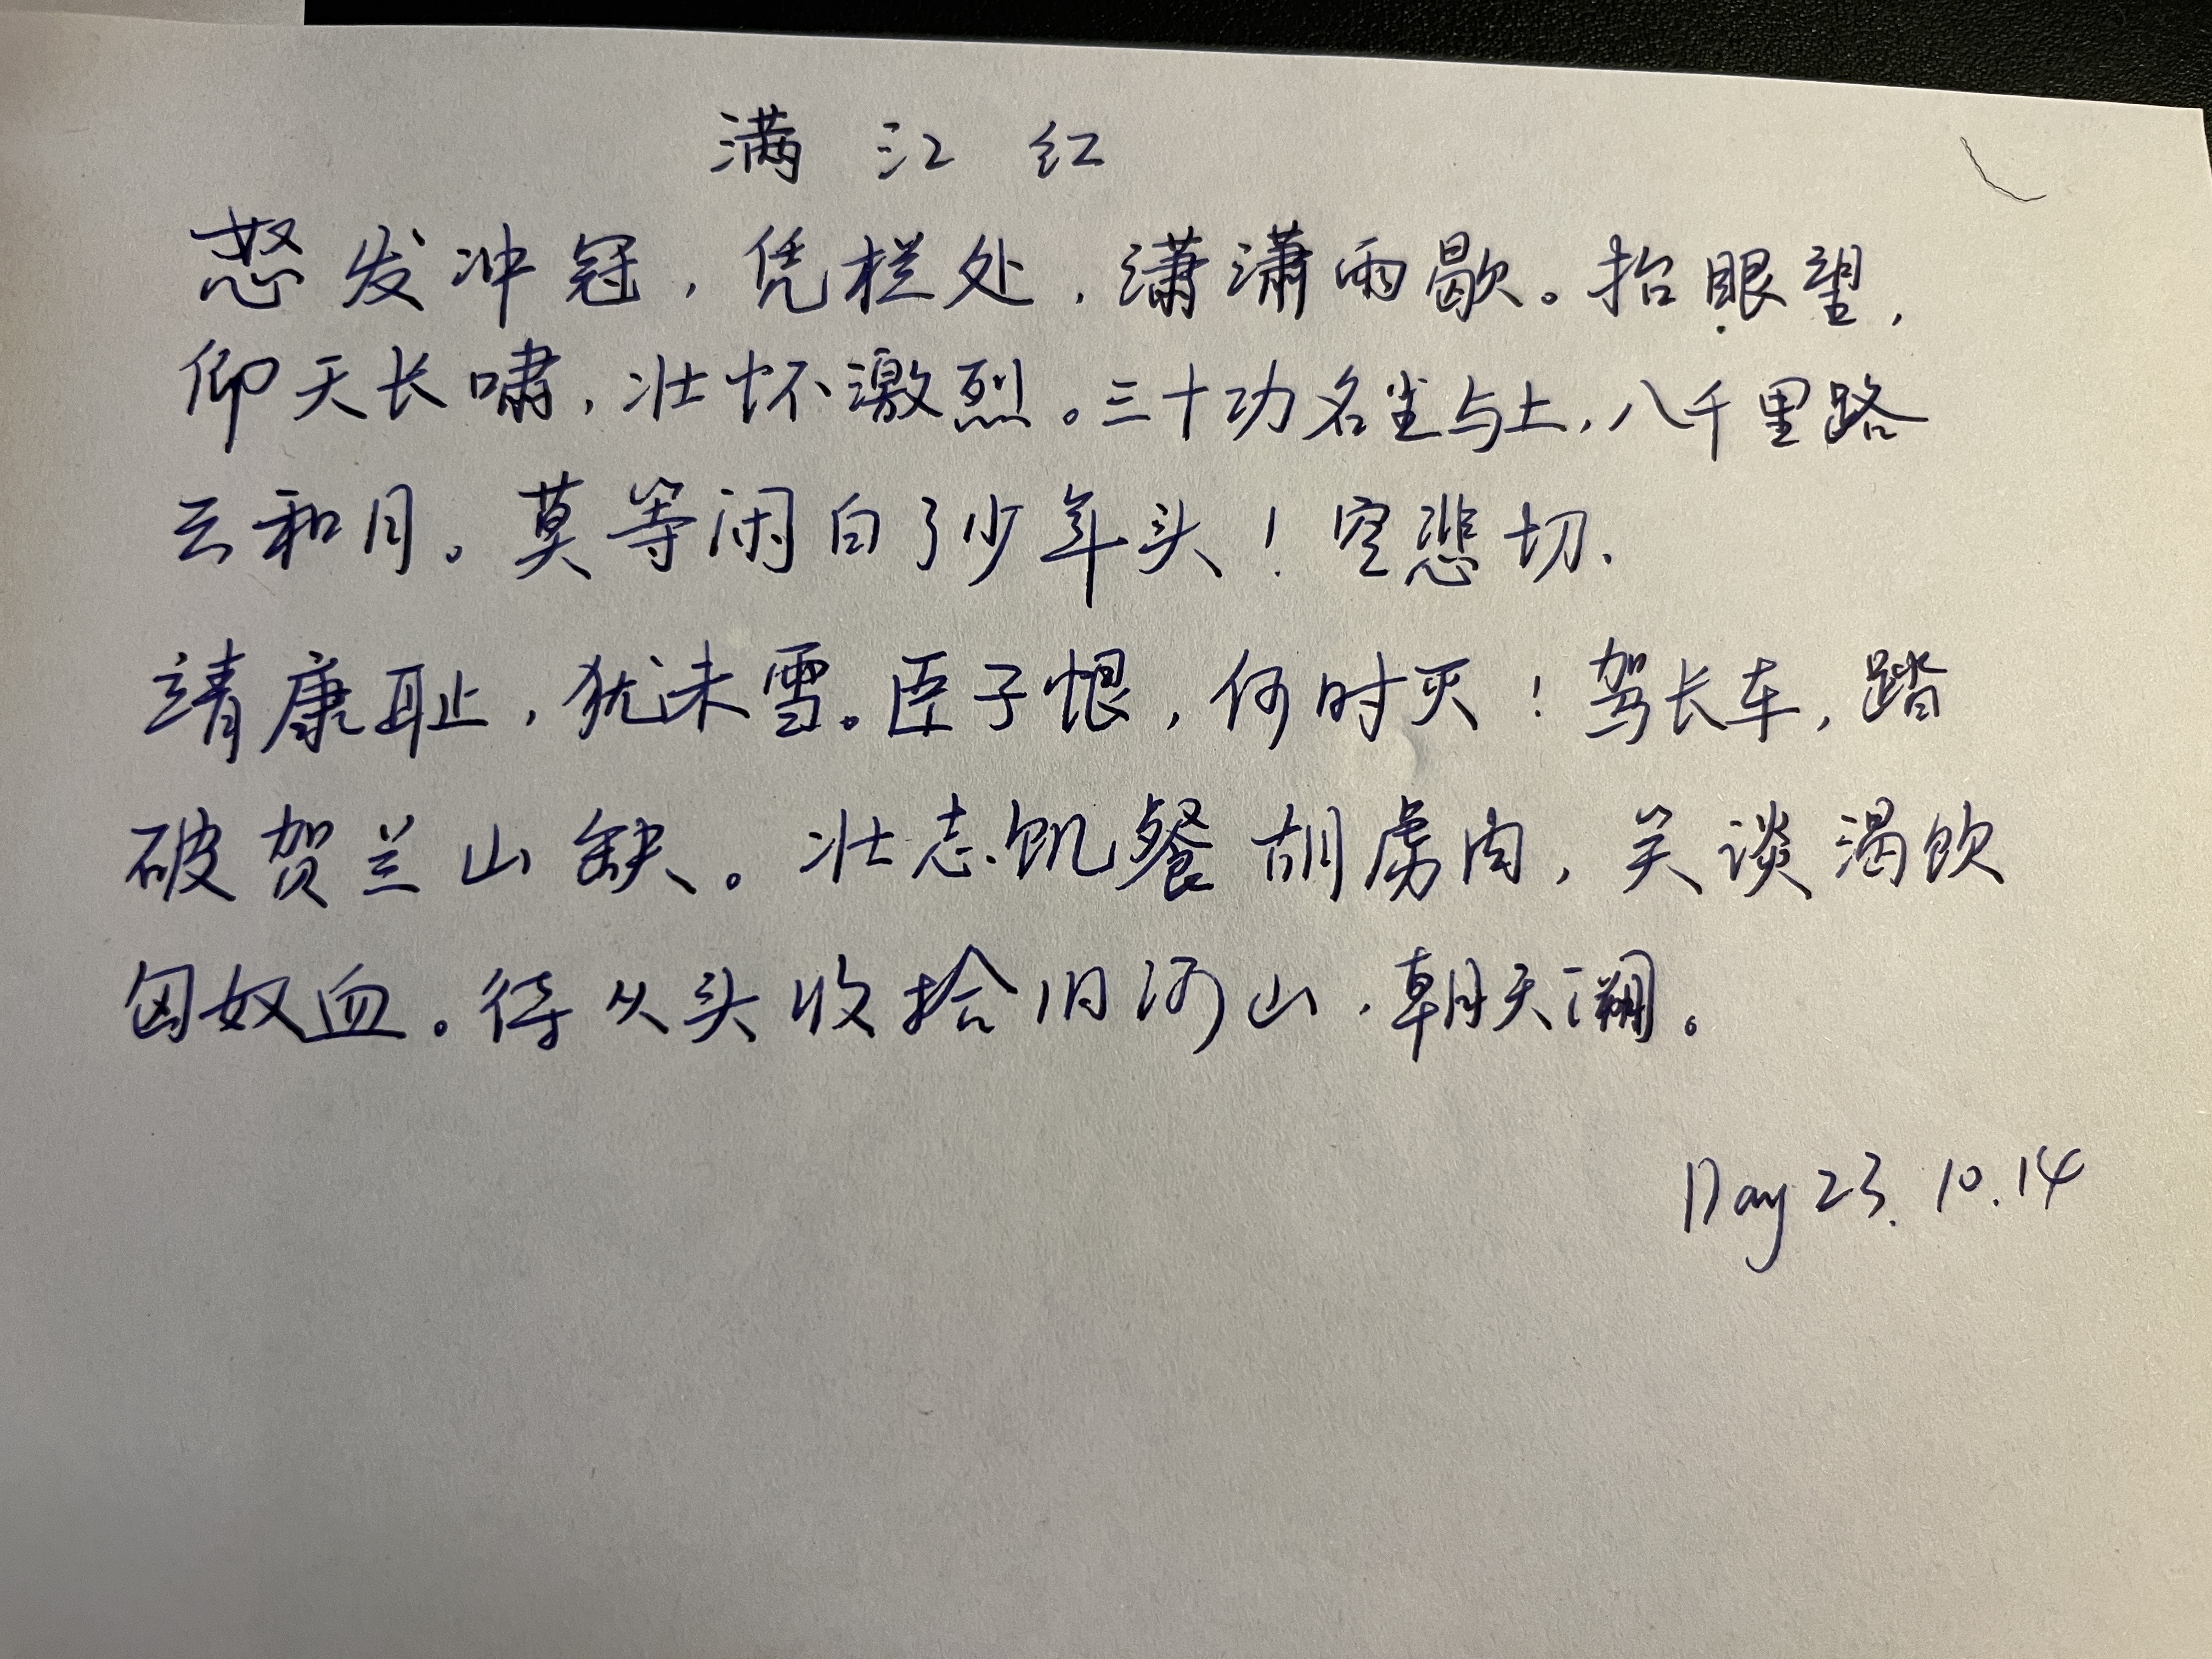 满江红
怒发冲冠，凭栏处，潇潇雨歇。抬眼望，
仰天长啸，壮怀激烈。三十功名尘与土，八千里路
云和月。莫等闲白了少年头！空悲切.
靖康耻，犹未雪。臣子恨，何时灭！驾长车，踏
破贺兰山缺。壮志饥餐胡虏肉，笑谈渴饮
匈奴血。待从头收拾旧河山，朝天阙。
Day 23. 10.14